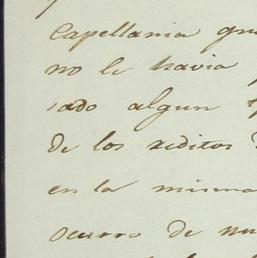 Capellania que
no le havia
sado algun
de los reditos
en la misma
ocurro de nu